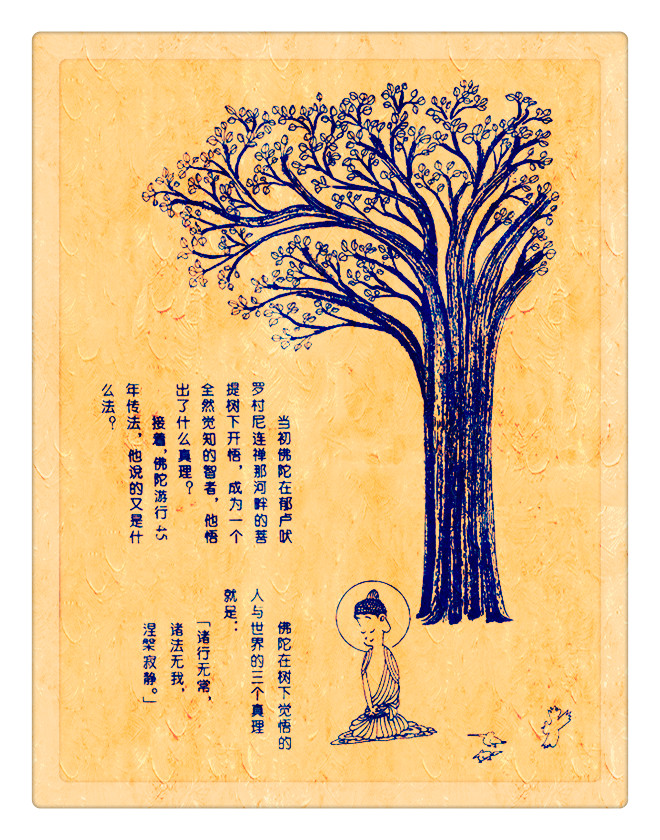 当初佛陀在郁卢吠
罗村尼连禅那河畔的菩
提树下开悟，成为一个
全然觉知的智者，他悟
出了什么真理？
接着，佛陀游行45
年传法，他说的又是什
么法？
佛陀在树下觉悟的
人与世界的三个真理
就是：
「诸行无常，
诸法无我，
涅槃寂静。」